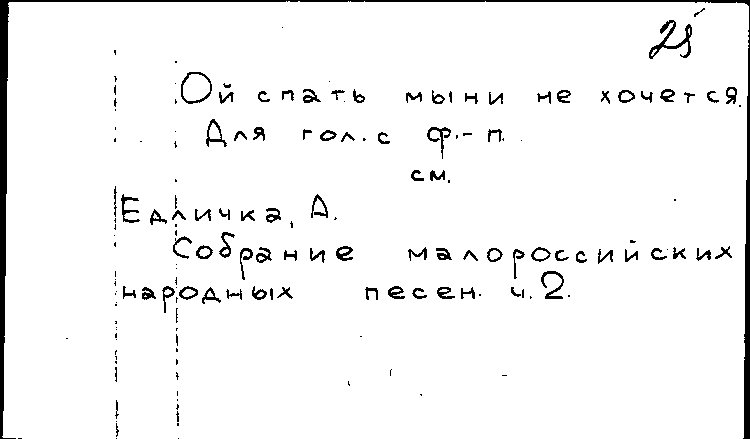 25
Ой спать мыни не хочется.
Для гол. с ф.-п.
см.
Едличка, А.
Собрание малороссийских
народных песен. ч. 2.